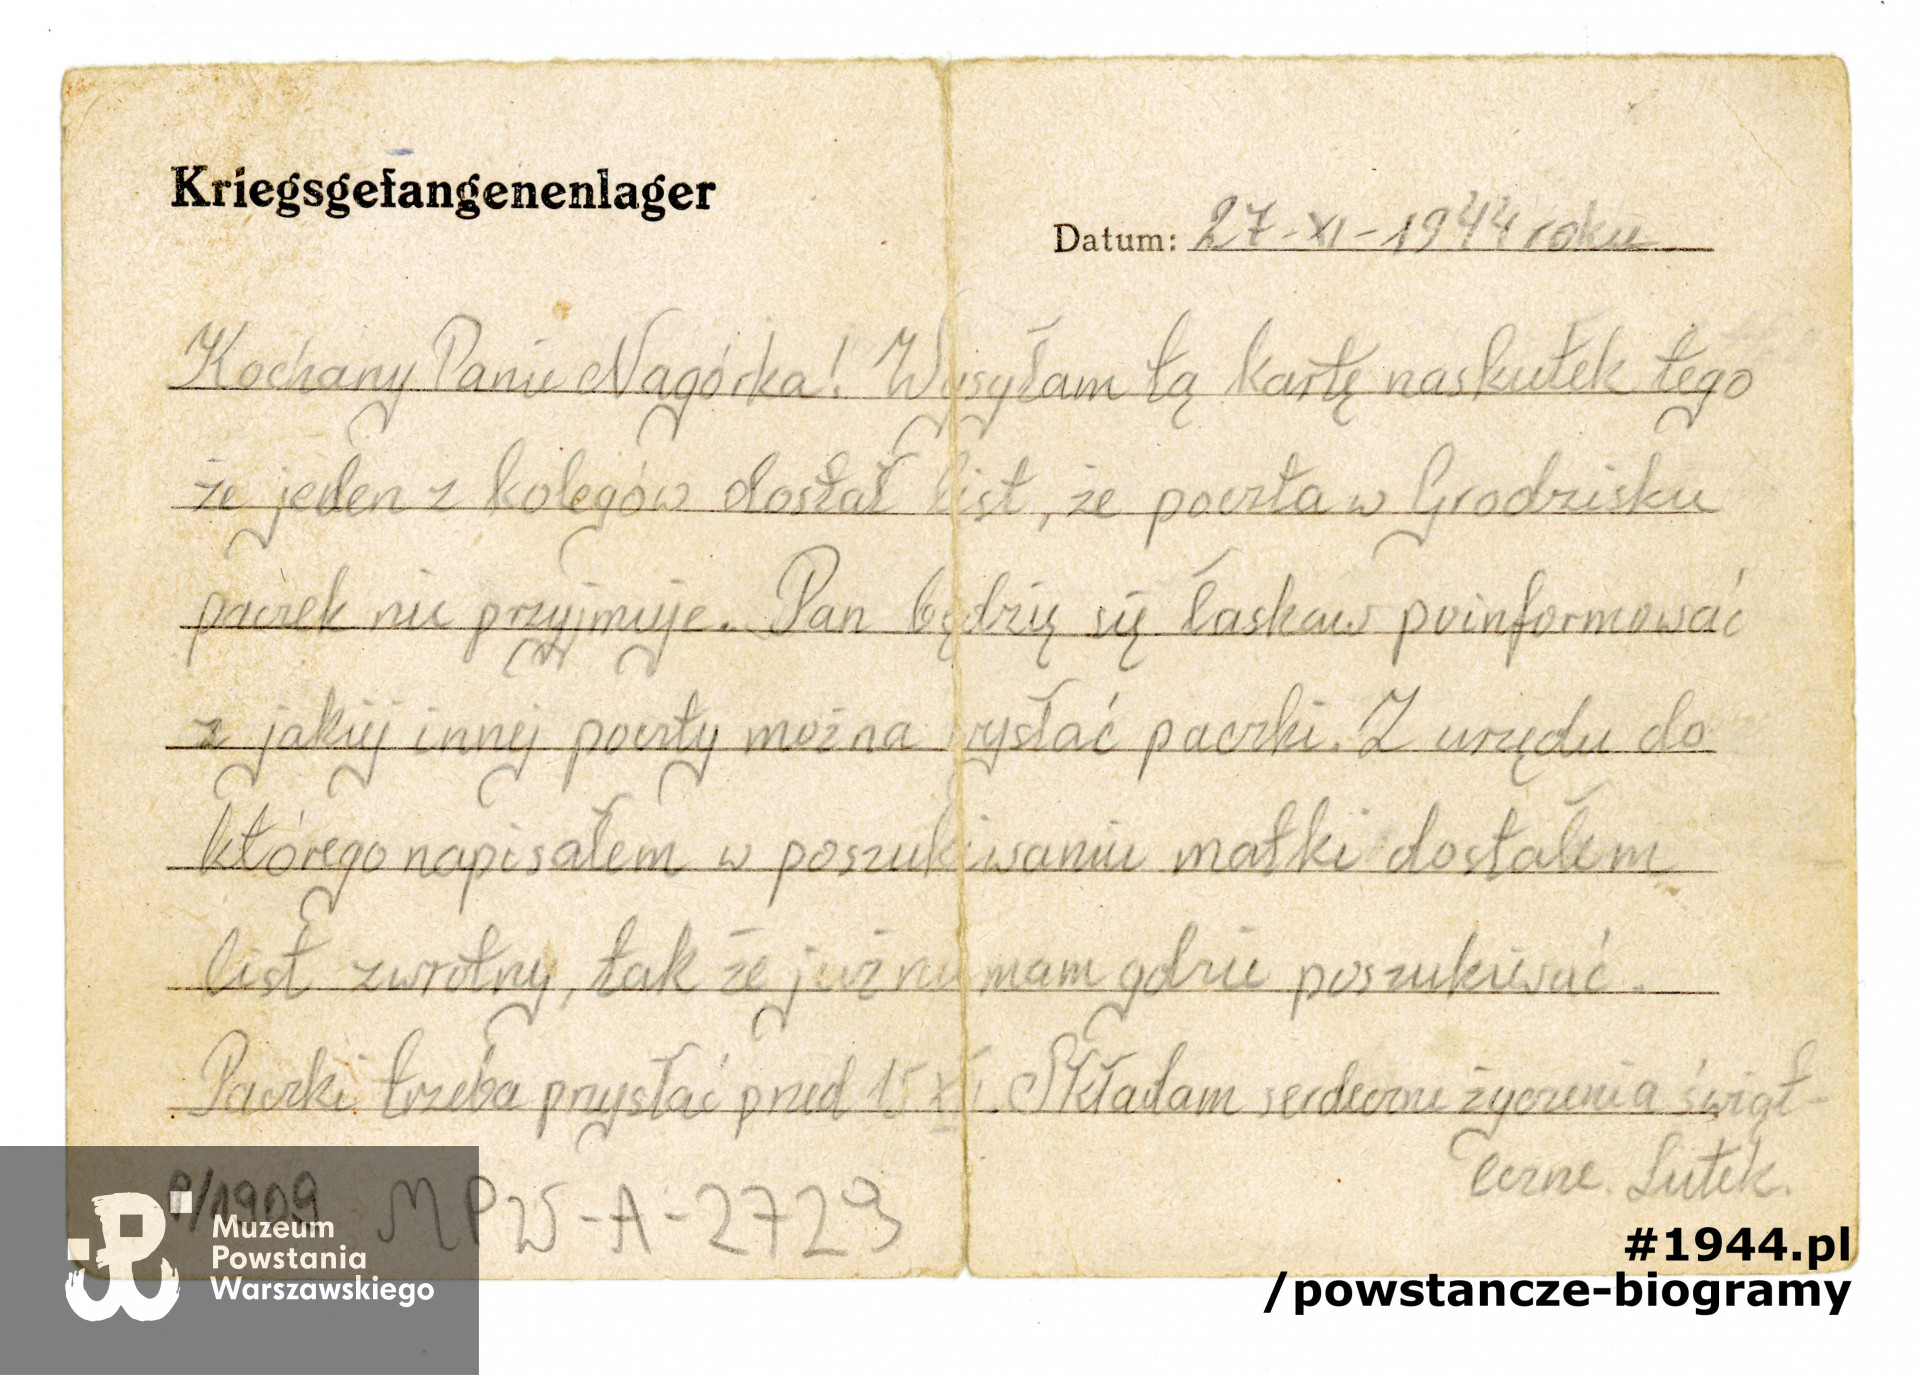 Kriegsgefangenenlager
Datum: 27-XI-1944 roku
Kochany Panie Nagórka! Wysyłam tą kartę naskutek tego
że jeden z kolegów dostał list, że poczta w Grodzisku
paczek nie przyjmuje. Pan będzię się łaskaw poinformować
z jakiej innej poczty można wysłać paczki. Z urzędu do
którego napisałem w poszukiwaniu matki dostałem
list zwrotny, tak że już nie mam gdzie poszukiwać.
Paczki trzeba przysłać przed 15 XI. Składam serdeczne życzenia świąt-
eczne. Lutek.
P/1909 MPW-A-2729
Muzeum
Powstania
Warszawskiego
#1944.pl
/powstancze-biogramy